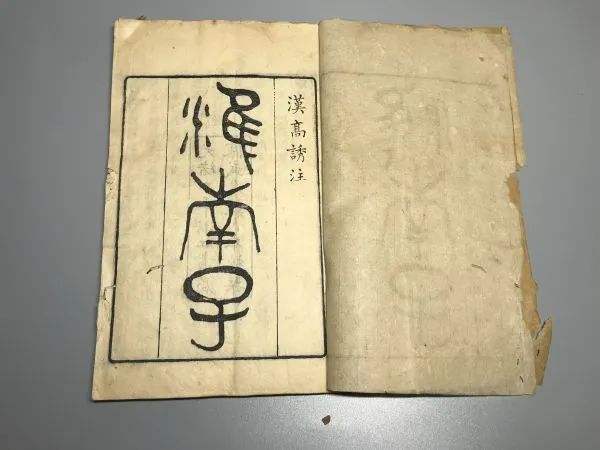 漢高誘注
淮南子